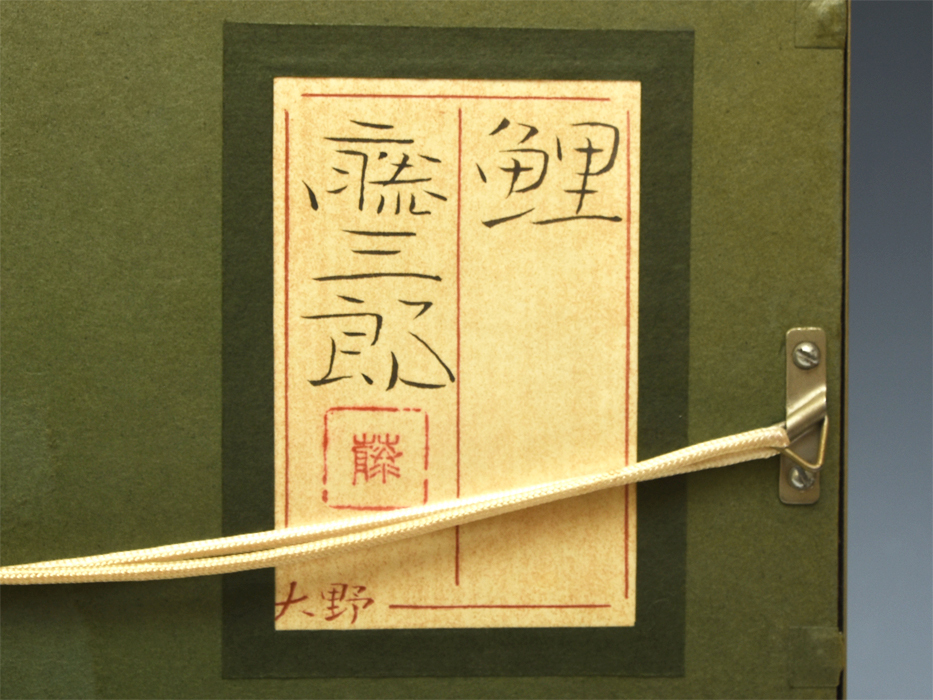 鯉
藤三郎
藤
大野